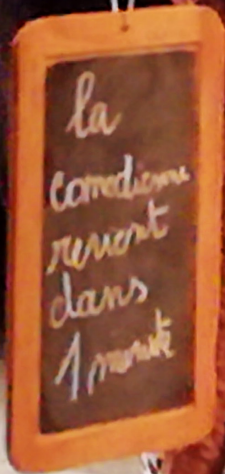 la
comedienne
revient
dans
1 minute